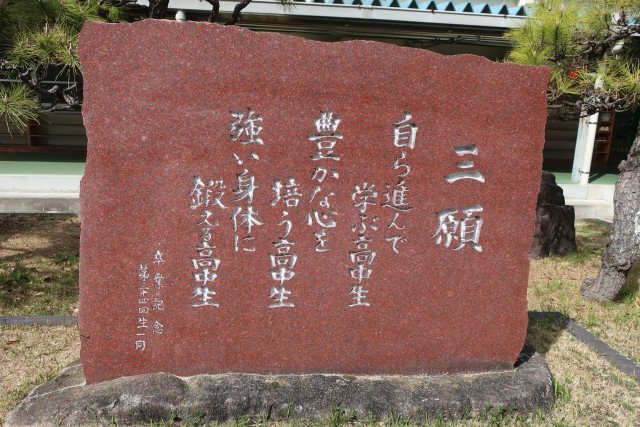 三願
自ら進んで
学ぶ高中生
豊かな心を
培う高中生
強い身体に
鍛える高中生
卒業記念
第三十四回生一同